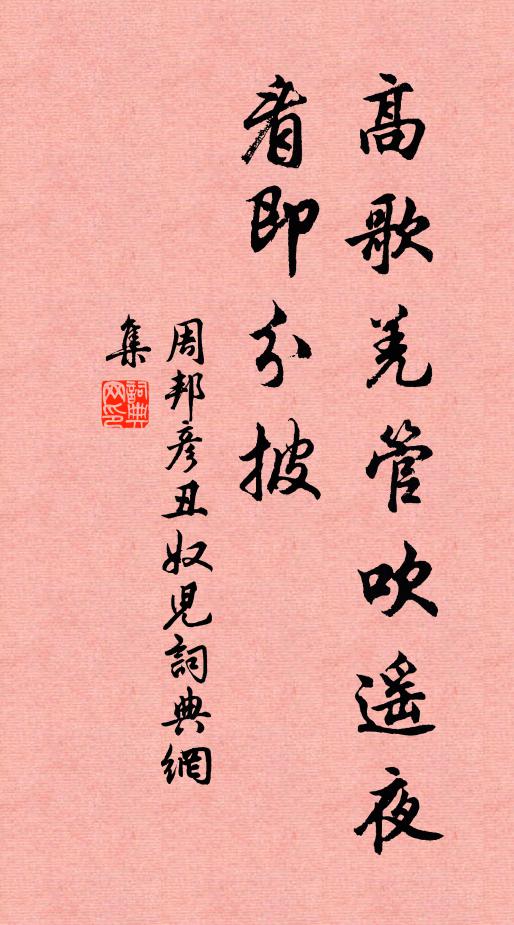 高歌羌管吹遥夜
看即分披
周邦彦丑奴児詞典網
集
詞典
网印